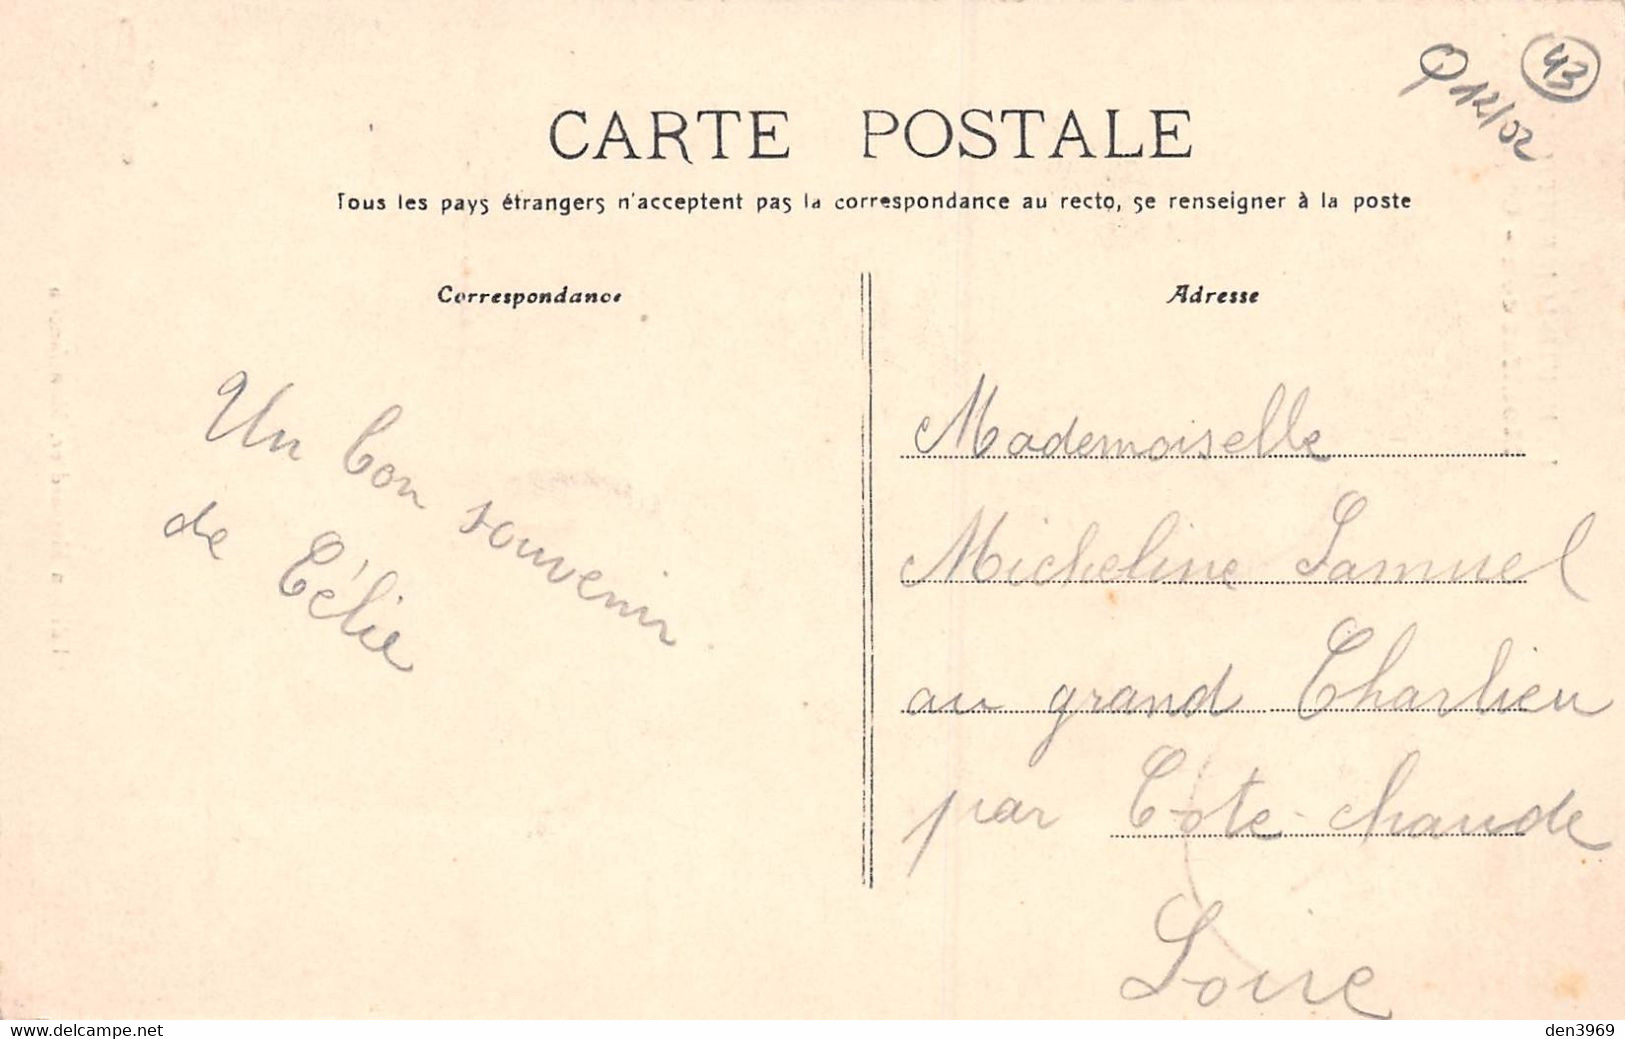 43
12/02
CARTE POSTALE
Tous les pays étrangers n'acceptent pas la correspondance au recto, se renseigner à la poste
Correspondance
Adresse
Un bon souvenir
de Célie
Mademoiselle
Micheline Samuel
au grand Charlieu
par Côte-chaude
Loire
www.delcampe.net
den3969